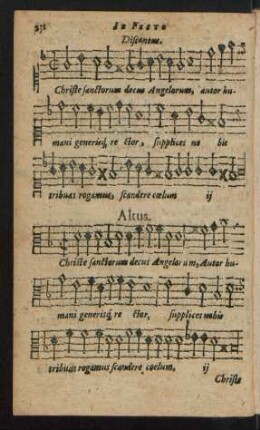 231 IN FESTO
Discantus.
Christe sanctorum decus Angelorum, autor hu-
mani generisq́; re ctor, supplices no bis
tribuas rogamus, scandere cœlum ij
Altus.
Christe sanctorum decus Angelorum, Autor hu-
mani generisq́; re ctor, supplices nobis
tribuas rogamus scandere coelum, ij
Christe